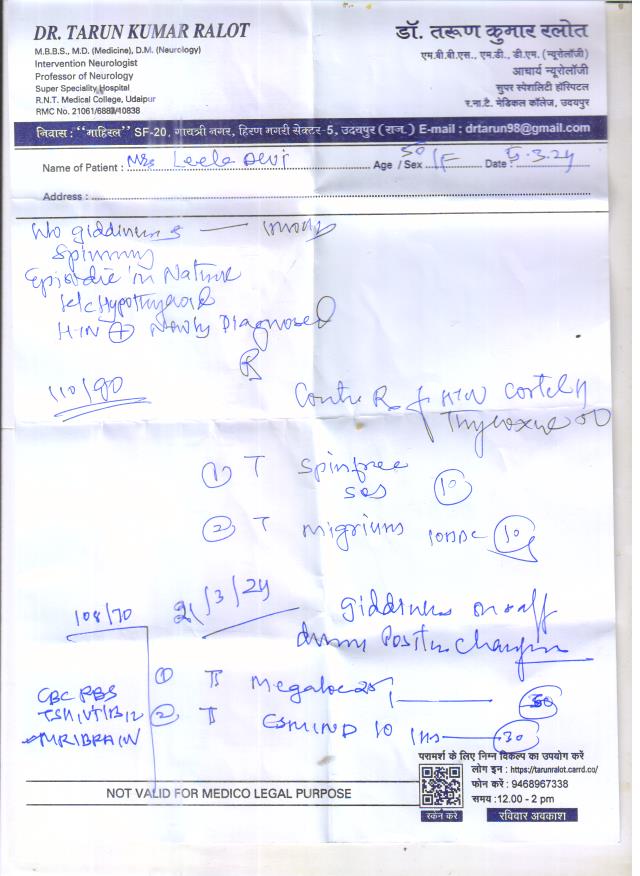 DR. TARUN KUMAR RALOT
M.B.B.S., M.D. (Medicine), D.M. (Neurology)
Intervention Neurologist
Professor of Neurology
Super Speciality Hospital
R.N.T. Medical College, Udaipur
RMC No. 21061/6881/10838
डॉ. तरूण कुमार रलोत
एम.बी.बी.एस., एम.डी., डी.एम. (न्यूरोलॉजी)
आचार्य न्यूरोलॉजी
सुपर स्पेशलिटी हॉस्पिटल
र.ना.टै. मेडिकल कॉलेज, उदयपुर
निवास : "माहिरल" SF-20, गायत्री नगर, हिरण मगरी सेक्टर-5, उदयपुर (राज.) E-mail : drtarun98@gmail.com
Name of Patient : Mrs Leela Devi Age / Sex 50/F Date : 5.3.24
Address :
giddiness
Spinning
Episodic in Nature
Hypothyroid
HTN + Newly Diagnosed
R
110/90
Contu R of HTN
Thyroxine OD
1 T Spinfree
SOS 10
2 T 10
108/70
21/3/24
giddiness on & off
Position
1 T
2 T 30
CBC RBS
TSH, VIT B12
MRI BRAIN
परामर्श के लिए निम्न विकल्प का उपयोग करें
लोग इन : https://tarunralot.carrd.co/
फोन करें : 9468967338
समय :12.00 - 2 pm
स्कॅन करे रविवार अवकाश
NOT VALID FOR MEDICO LEGAL PURPOSE